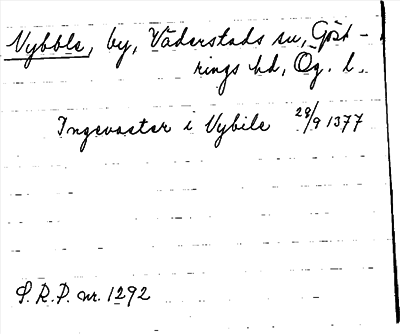 Nybble, by, Väderstads sn, Göst-
rings hd, Ög. l.
Ingevaster i Nybile 29/9 1377
S.R.P. nr. 1292